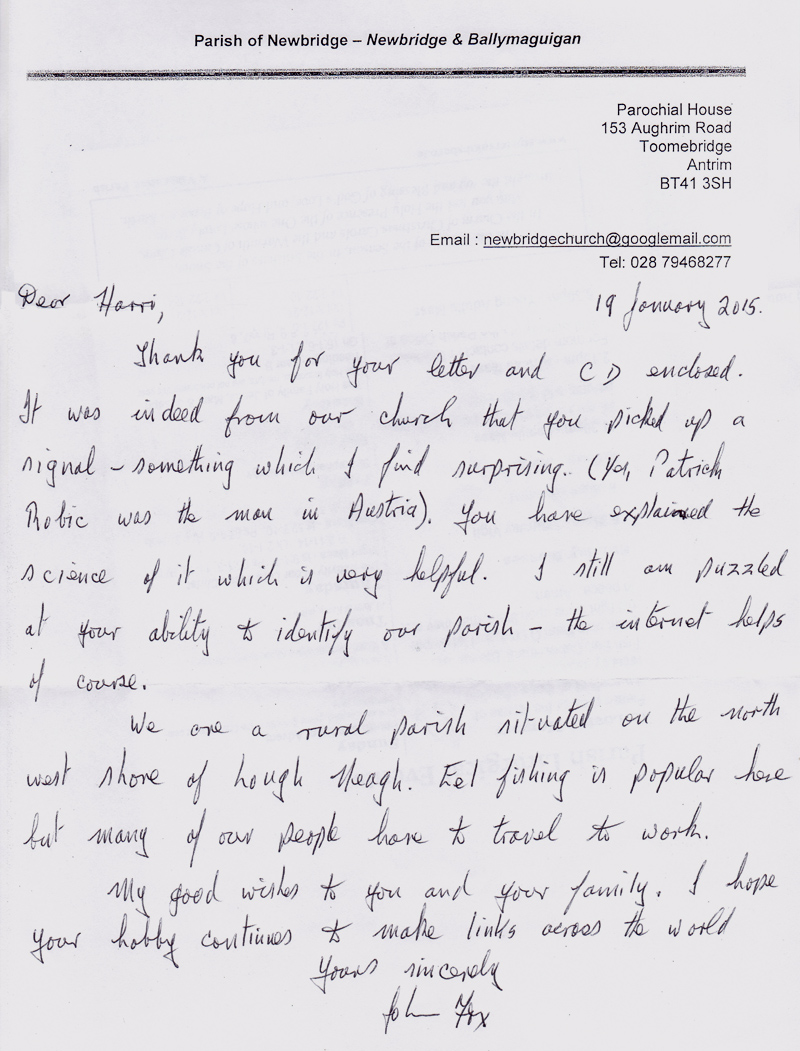 Parish of Newbridge – Newbridge & Ballymaguigan
Parochial House
153 Aughrim Road
Toomebridge
Antrim
BT41 3SH
Email : newbridgechurch@googlemail.com
Tel: 028 79468277
Dear Harri,
19 January 2015.
Thank you for your letter and CD enclosed.
It was indeed from our church that you picked up a
signal – something which I find surprising. (Yes, Patrick
Robic was the man in Austria). You have explained the
science of it which is very helpful. I still am puzzled
at your ability to identify our parish – the internet helps
of course.
We are a rural parish situated on the north
west shore of Lough Neagh. Eel fishing is popular here
but many of our people have to travel to work.
My good wishes to you and your family. I hope
your hobby continues to make links across the world
Yours sincerely
John Fox